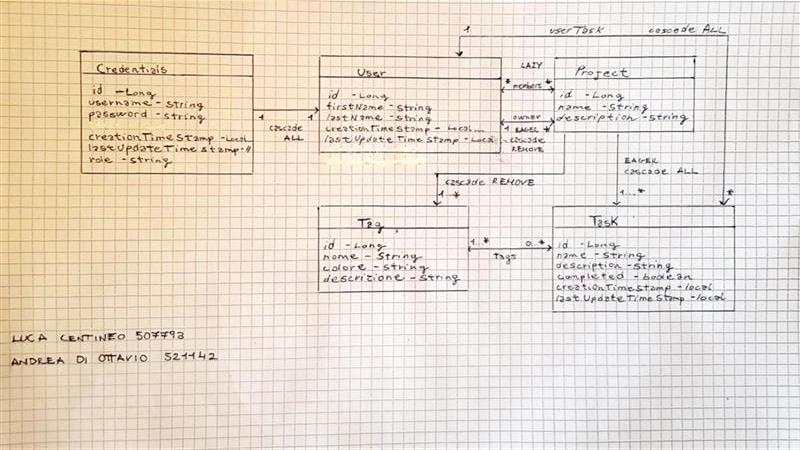 1 userTask cascade ALL
Credentials
id - Long
username - String
password - String
creationTimeStamp - Local
lastUpdateTimeStamp - //
role - String
1 1
cascade
ALL
User
id - Long
firstName - String
lastName - String
creationTimeStamp - Local...
lastUpdateTimeStamp - Local
LAZY
* members *
owner
1 EAGER *
cascade
REMOVE
Project
id - Long
name - String
description - String
cascade REMOVE
1...*
EAGER
cascade ALL
1...*
*
Tag
id - Long
nome - String
colore - String
descrizione - String
1...* 0..*
Tags
Task
id - Long
name - String
description - String
completed - boolean
creationTimeStamp - local
last UpdateTimeStamp - local
LUCA CENTINEO 507793
ANDREA DI OTTAVIO 521142